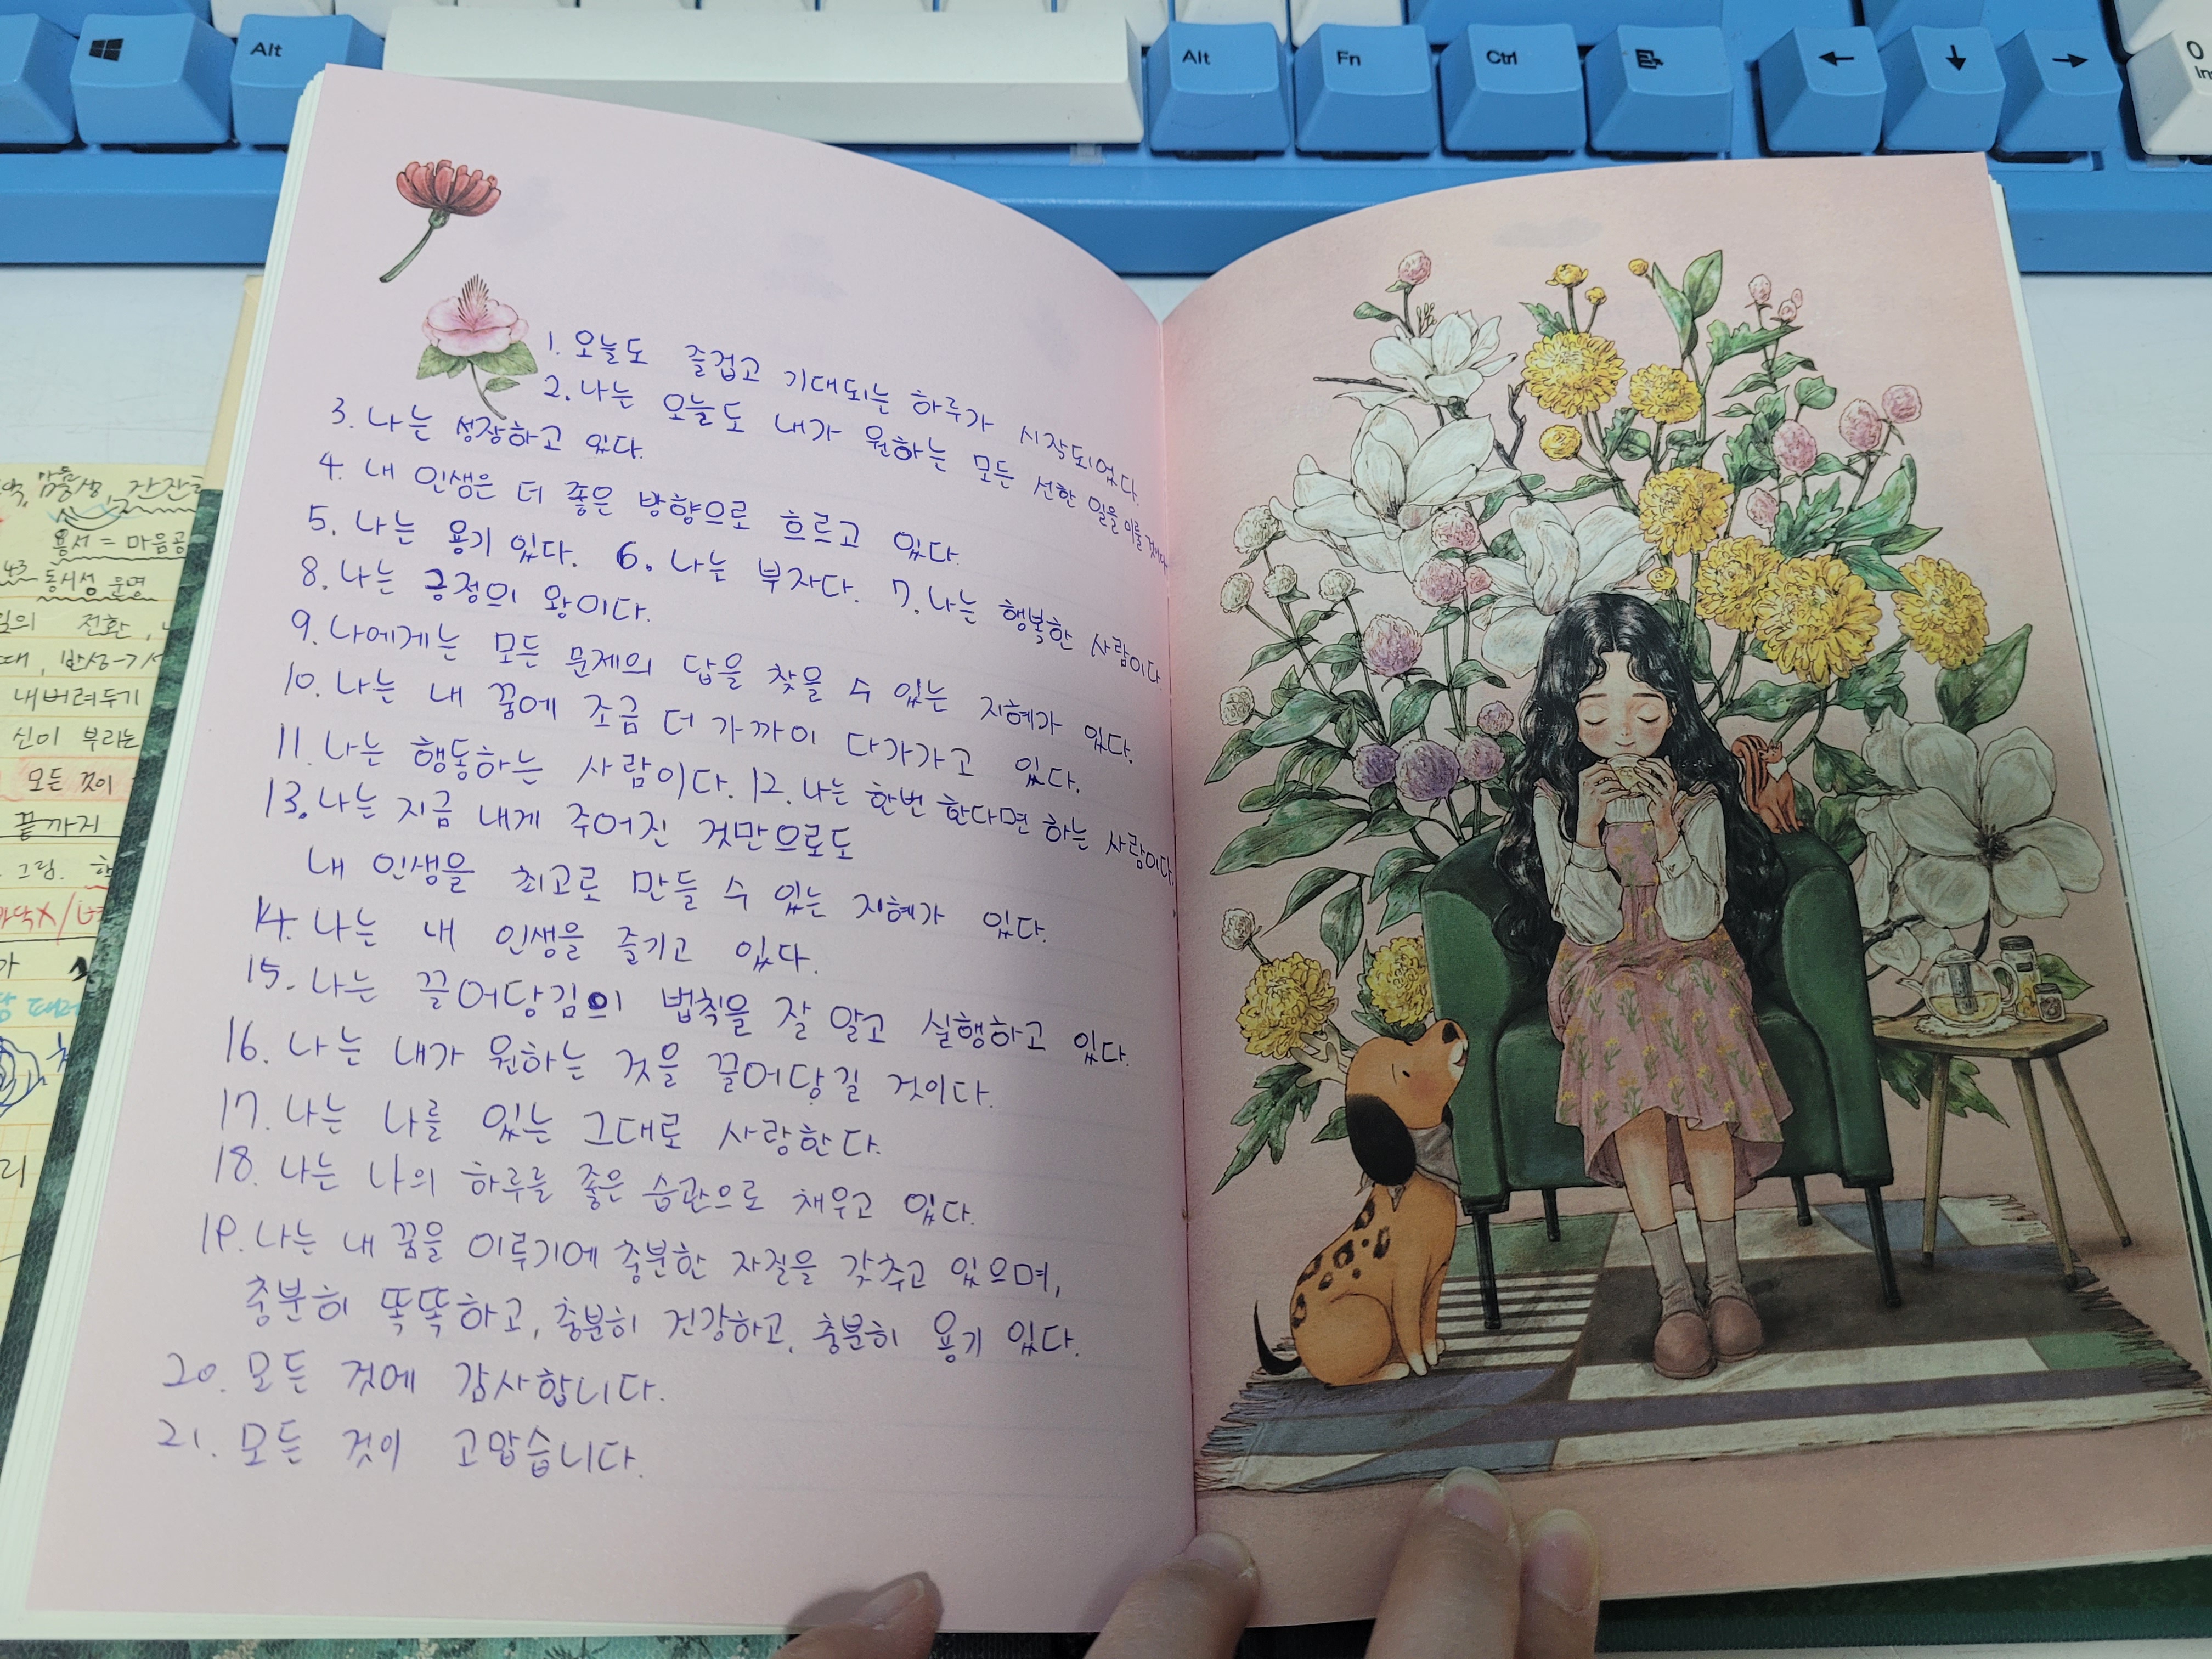 Alt
Alt
Fn
Ctrl
←
↓
→
0
1. 오늘도 즐겁고 기대되는 하루가 시작되었다.
2. 나는 오늘도 내가 원하는 모든 선한 일을 이룰 것이다.
3. 나는 성장하고 있다.
4. 내 인생은 더 좋은 방향으로 흐르고 있다.
5. 나는 용기 있다. 6. 나는 부자다. 7. 나는 행복한 사람이다.
8. 나는 긍정의 왕이다.
9. 나에게는 모든 문제의 답을 찾을 수 있는 지혜가 있다.
10. 나는 내 꿈에 조금 더 가까이 다가가고 있다.
11. 나는 행동하는 사람이다. 12. 나는 한번 한다면 하는 사람이다.
13. 나는 지금 내게 주어진 것만으로도
내 인생을 최고로 만들 수 있는 지혜가 있다.
14. 나는 내 인생을 즐기고 있다.
15. 나는 끌어당김의 법칙을 잘 알고 실행하고 있다.
16. 나는 내가 원하는 것을 끌어당길 것이다.
17. 나는 나를 있는 그대로 사랑한다.
18. 나는 나의 하루를 좋은 습관으로 채우고 있다.
19. 나는 내 꿈을 이루기에 충분한 자질을 갖추고 있으며,
충분히 똑똑하고, 충분히 건강하고, 충분히 용기 있다.
20. 모든 것에 감사합니다.
21. 모든 것이 고맙습니다.
용서 = 마음공
동시성 운명
전환,
내버려두기
신이 부리는
모든 것이
끝까지
그림.